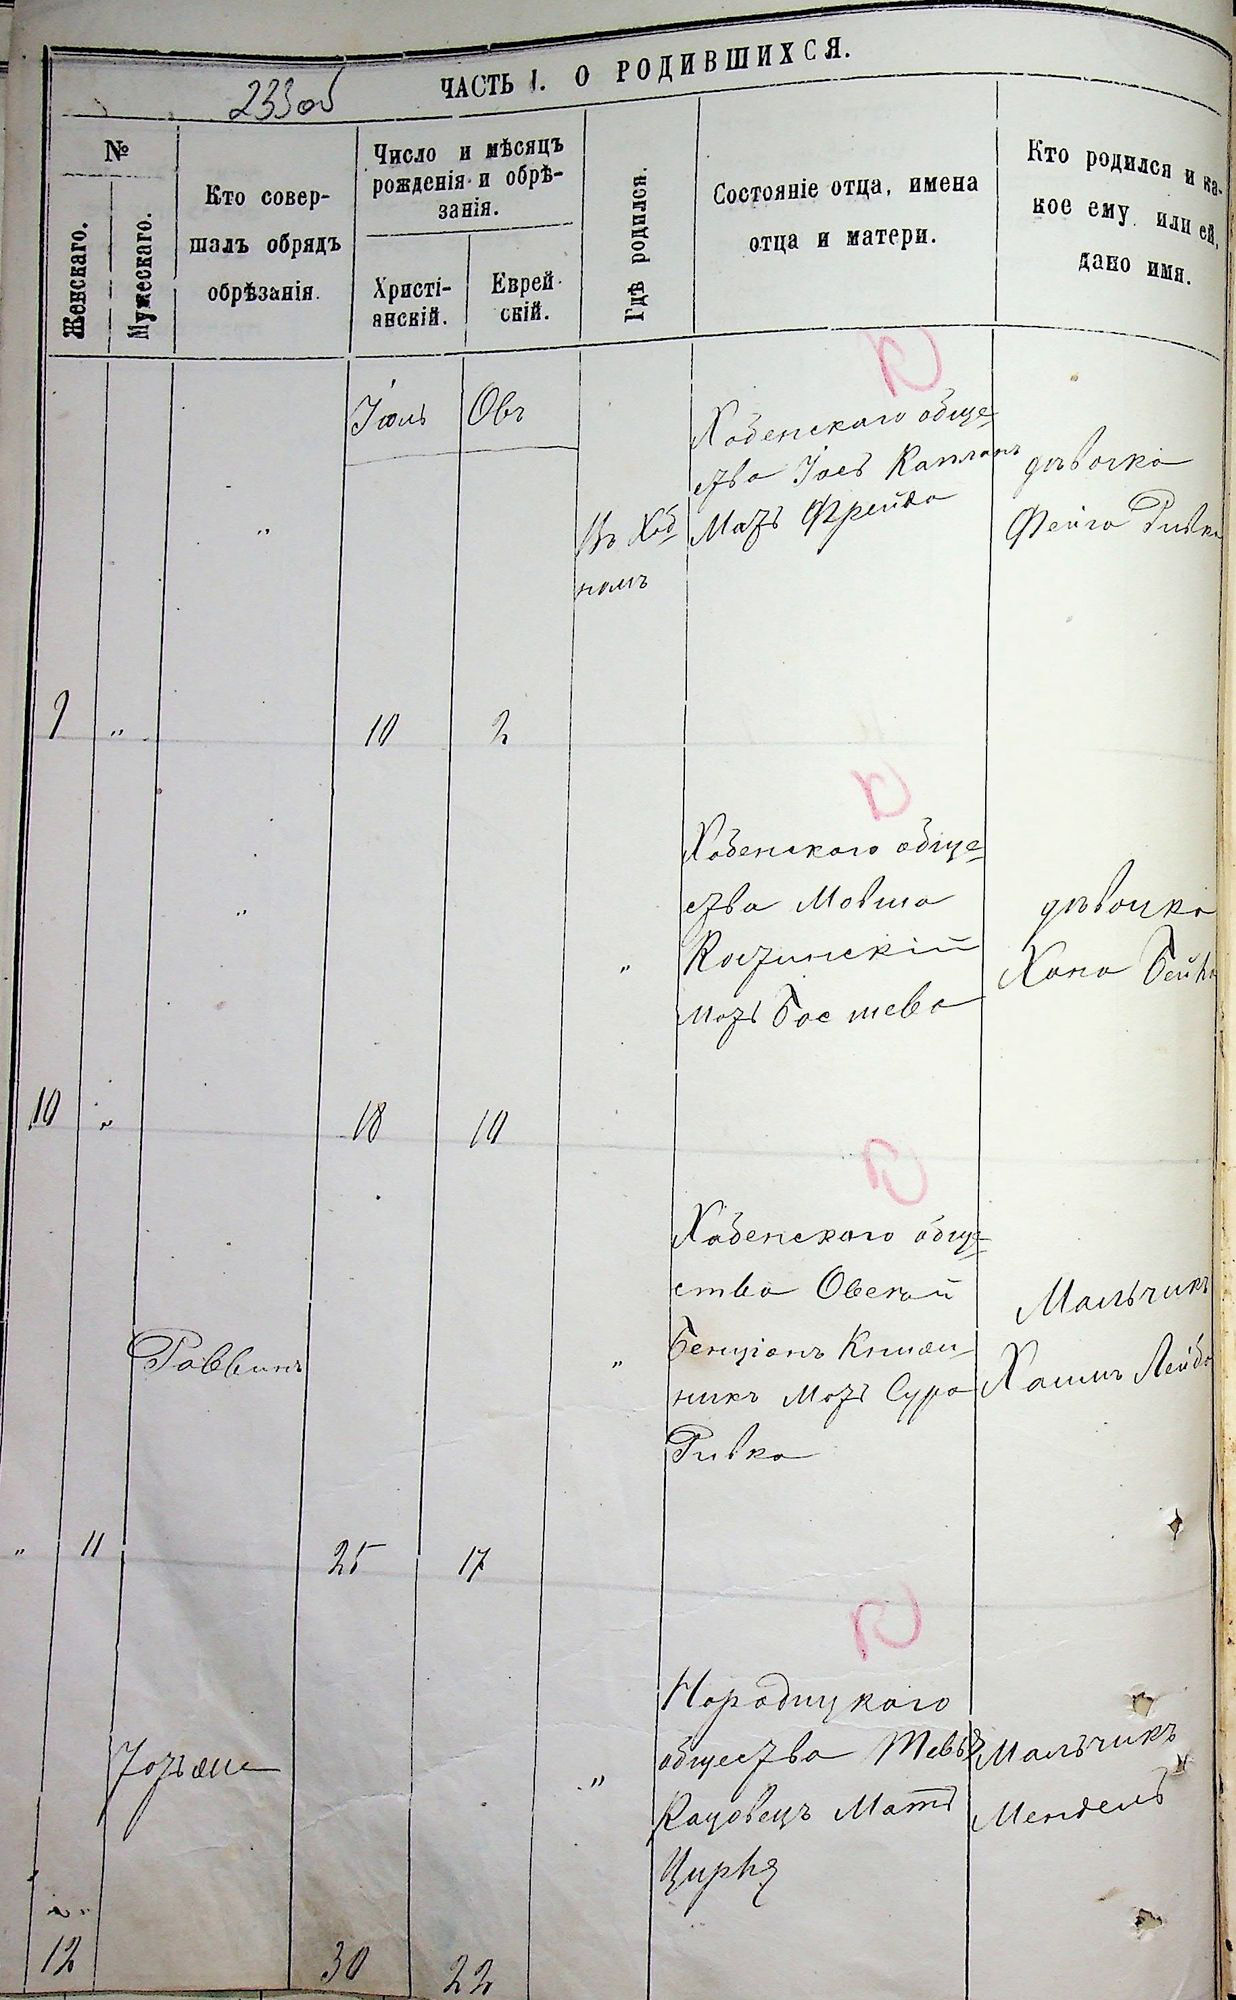 ЧАСТЬ I. О РОДИВШИХСЯ.
233об
№
Женскаго.
Мужескаго.
Кто совер-
шалъ обрядъ
обрѣзанія.
Число и мѣсяцъ
рожденія и обрѣ-
занія.
Христі-
анскій.
Еврей-
скій.
Гдѣ родился.
Состояніе отца, имена
отца и матери.
Кто родился и ка-
кое ему или ей,
дано имя.
Іюль
Овъ
"
Въ Хоб
номъ
Хобенскаго обще-
ства Іось Капланъ
Мать Фрейда
дѣвочка
Фейга Ривка
9
"
10
2
"
"
Хобенскаго обще-
ства Мовша
мать Бас шева
дѣвочка
Хана Бейла
10
"
18
10
Раввинъ
"
Хобенскаго обще-
ства Овсѣй
Бенціонъ Книж-
никъ мать Сура
Ривка
Мальчикъ
Хаимъ Лейба
"
11
25
17
Тотъже
"
Народицкаго
общества Тевье
Кацовецъ Мать
Цирля
Мальчикъ
Мендель
12
30
22